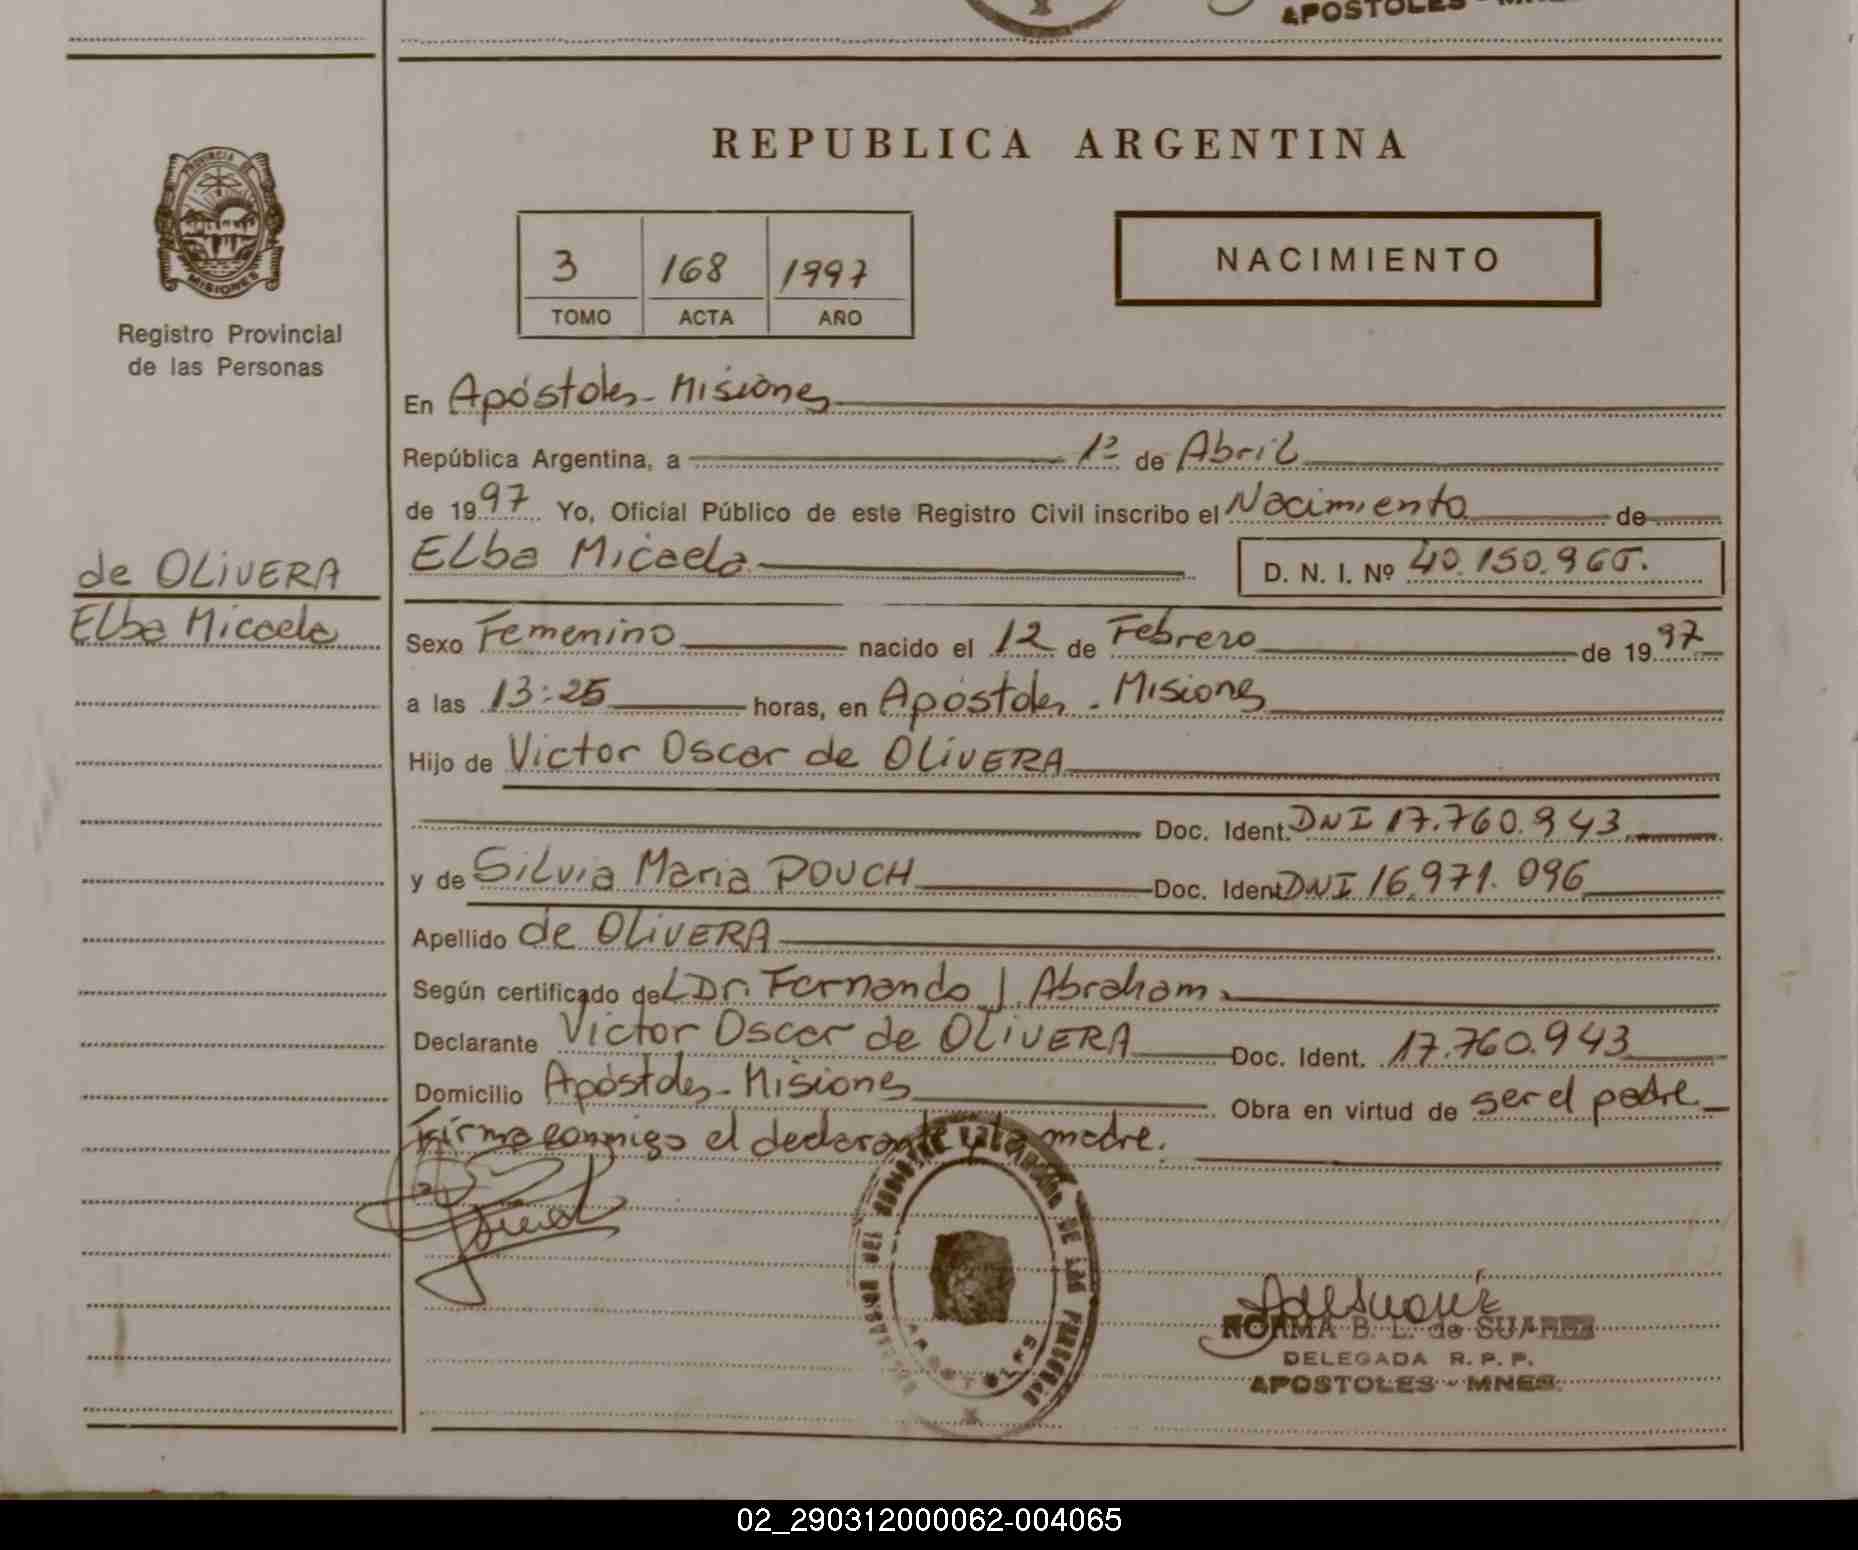 APOSTOLES - MNES
REPUBLICA ARGENTINA
PROVINCIA DE
MISIONES
Registro Provincial
de las Personas
3 168 1997
TOMO ACTA AÑO
NACIMIENTO
En Apóstoles - Misiones
República Argentina, a 1º de Abril
de 1997 Yo, Oficial Público de este Registro Civil inscribo el Nacimiento de
de OLIVERA
Elba Micaela
Elba Micaela D. N. I. Nº 40.150.966.
Sexo Femenino nacido el 12 de Febrero de 1997
a las 13:25 horas, en Apóstoles - Misiones
Hijo de Victor Oscar de OLIVERA
Doc. Ident. DNI 17.760.943
y de Silvia Maria POUCH Doc. Ident DNI 16.971.096
Apellido de OLIVERA
Según certificado del Dr. Fernando J. Abraham
Declarante Victor Oscar de OLIVERA Doc. Ident. 17.760.943
Domicilio Apóstoles - Misiones Obra en virtud de ser el padre
Firma conmigo el declarante y la madre.
DE LAS PERSONAS
APOSTOLES
NORMA B. L. de SUAREZ
DELEGADA R. P. P.
APOSTOLES - MNES.
02_290312000062-004065